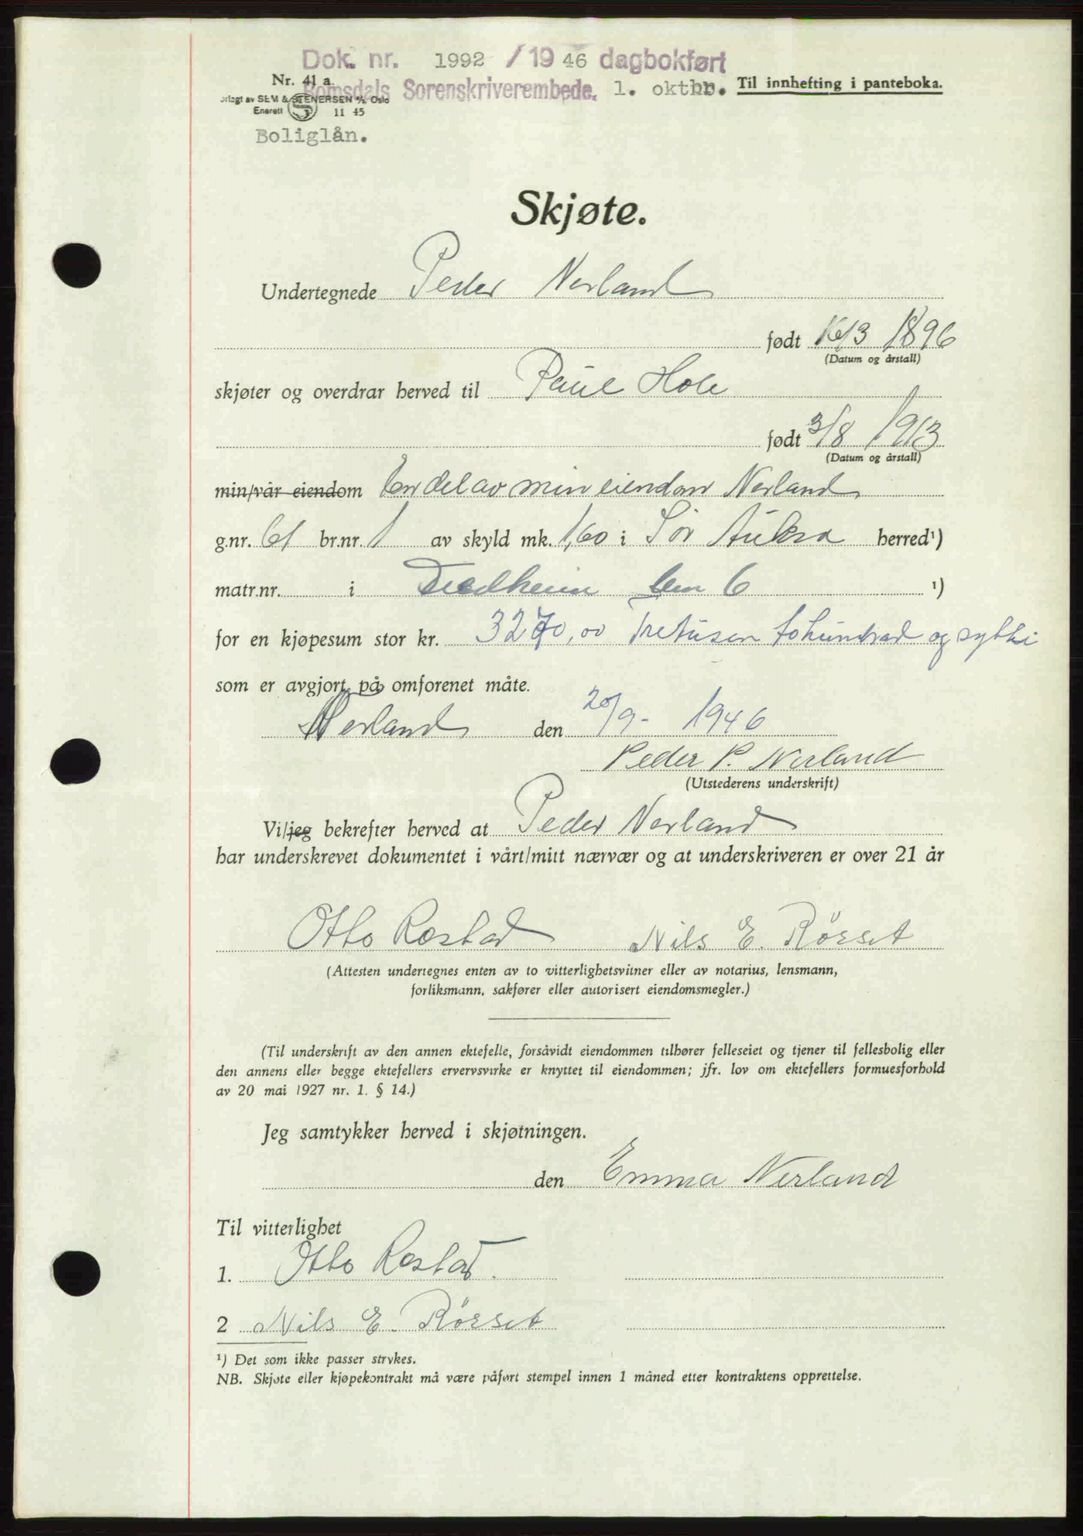 Dok. nr. 1992 / 19 46 dagbokført
Nr. 41 a. Romsdals Sorenskriverembede. 1. oktbr. Til innhefting i panteboka.
SEM & STENERSEN A/S Oslo
Enerett 11 45
Boliglån.
Skjøte.
Undertegnede Peder Nerland
født 16/3 1896
(Datum og årstall)
skjøter og overdrar herved til Paul Hole
født 3/8 1913
(Datum og årstall)
min/vår eiendom En del av min eiendom Nerland
g.nr. 61 br.nr. 1 av skyld mk. 1,60 i Sør Aukra herred¹)
matr.nr. i Fredheim 6 ¹)
for en kjøpesum stor kr. 3270,00 Tretusen tohundrad og sytti
som er avgjort på omforenet måte.
Nerland den 20/9- 1946
Peder P. Nerland
(Utstederens underskrift)
Vi/jeg bekrefter herved at Peder Nerland
har underskrevet dokumentet i vårt/mitt nærvær og at underskriveren er over 21 år
Otto Rostad Nils E. Rørset
(Attesten undertegnes enten av to vitterlighetsvitner eller av notarius, lensmann,
forliksmann, sakfører eller autorisert eiendomsmegler.)
(Til underskrift av den annen ektefelle, forsåvidt eiendommen tilhører felleseiet og tjener til fellesbolig eller
den annens eller begge ektefellers ervervsvirke er knyttet til eiendommen; jfr. lov om ektefellers formuesforhold
av 20 mai 1927 nr. 1. § 14.)
Jeg samtykker herved i skjøtningen.
den Emma Nerland
Til vitterlighet
1. Otto Rostad.
2 Nils E. Rørset
¹) Det som ikke passer strykes.
NB. Skjøte eller kjøpekontrakt må være påført stempel innen 1 måned etter kontraktens opprettelse.